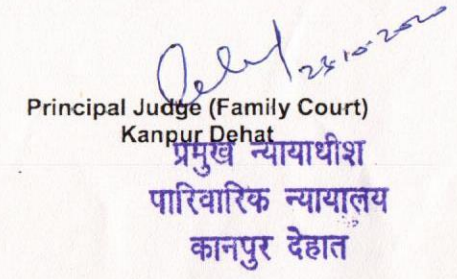 23-10-2020
Principal Judge (Family Court)
Kanpur Dehat
प्रमुख न्यायाधीश
पारिवारिक न्यायालय
कानपुर देहात